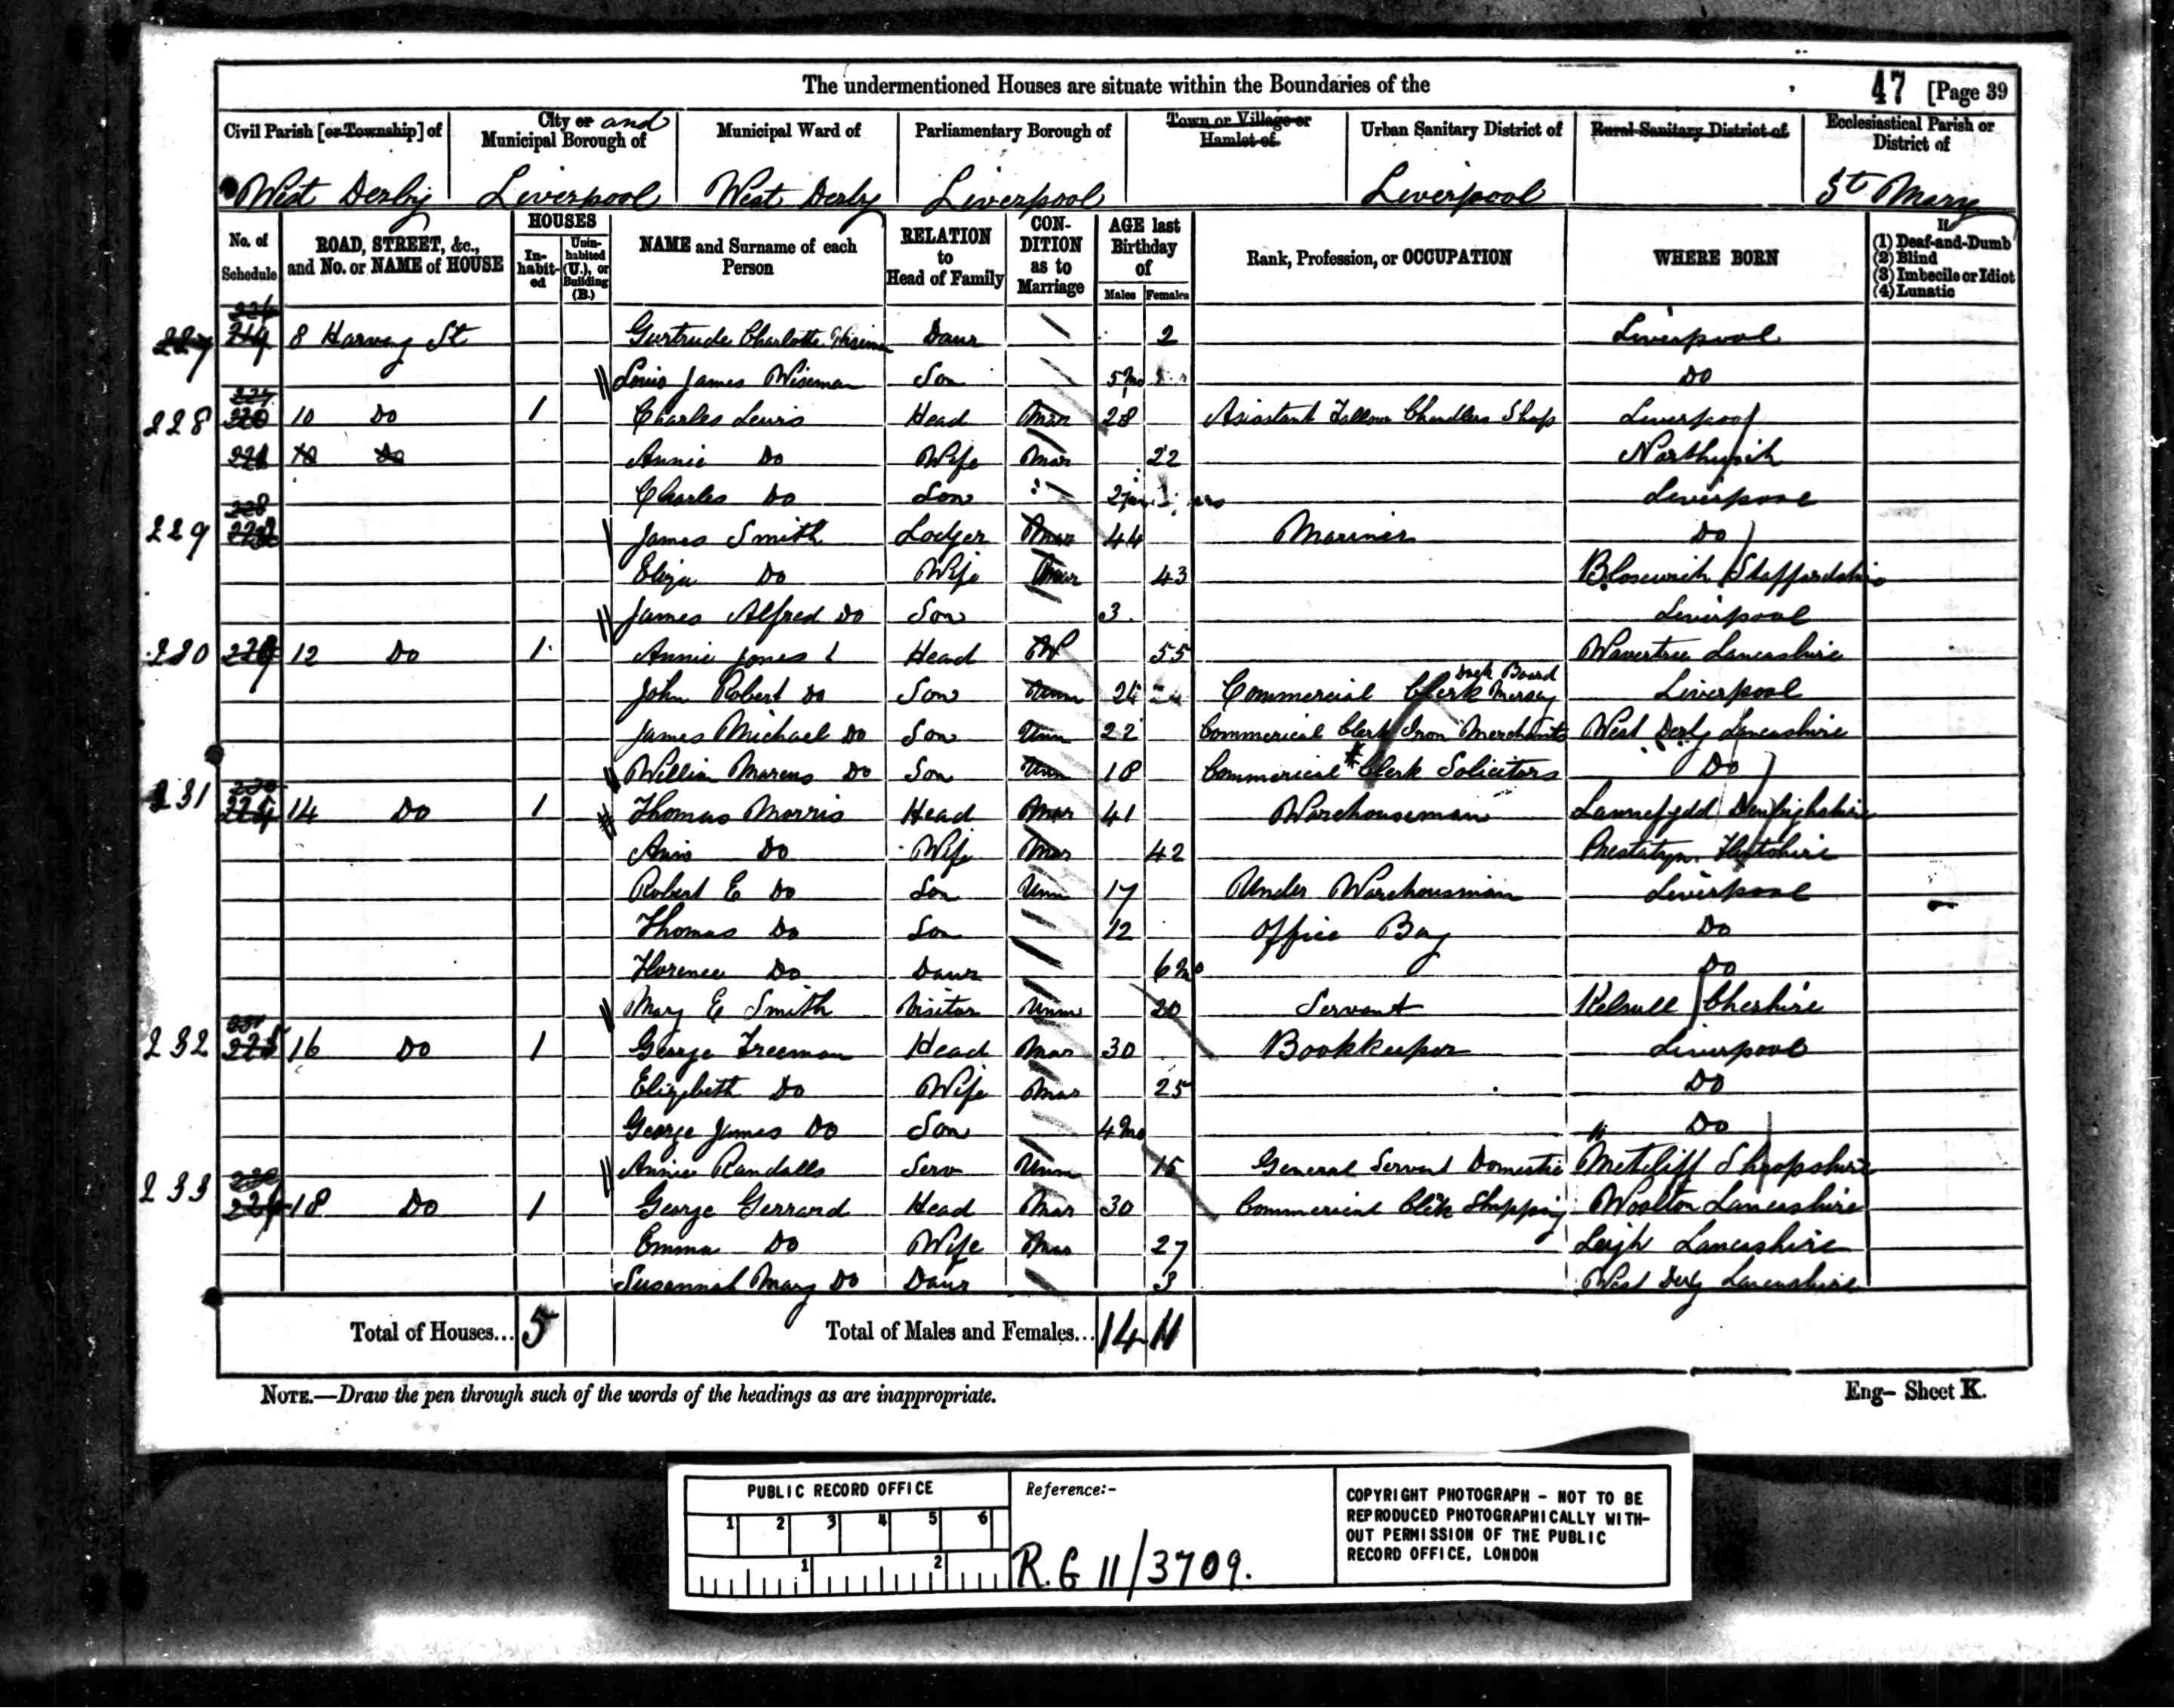 The undermentioned Houses are situate within the Boundaries of the
47 [Page 39
Civil Parish [or Township] of
City or and Municipal Borough of
Municipal Ward of
Parliamentary Borough of
Town or Village or Hamlet of
Urban Sanitary District of
Rural Sanitary District of
Ecclesiastical Parish or District of
West Derby Liverpool West Derby Liverpool Liverpool St Mary
No. of Schedule
ROAD, STREET, &c., and No. or NAME of HOUSE
HOUSES
In-habit-ed
Unin-habited (U.), or Building (B.)
NAME and Surname of each Person
RELATION to Head of Family
CON-DITION as to Marriage
AGE last Birthday of
Males Females
Rank, Profession, or OCCUPATION
WHERE BORN
If
(1) Deaf-and-Dumb
(2) Blind
(3) Imbecile or Idiot
(4) Lunatic
227 8 Harvey St Gertrude Charlotte Daur 2 Liverpool
Louis James Wiseman Son 5 Mo Do
228 10 Do 1 Charles Lewis Head Mar 28 Assistant Tallow Chandlers Shop Liverpool
10 Do Annie Do Wife Mar 22 Northwich
Charles Do Son 2 Liverpool
229 James Smith Lodger Mar 44 Mariner Do
Eliza Do Wife Mar 43 Bloxwich Staffordshire
James Alfred Do Son 3 Liverpool
230 12 Do 1 Annie Jones Head W 55 Wavertree Lancashire
John Robert Do Son Unm Commercial Clerk Mersey Dock Board Liverpool
James Michael Do Son Unm 22 Commerical Clerk Iron Merchants West Derby Lancashire
William Marcus Do Son Unm 18 Commerical Clerk Solicitors Do
231 14 Do 1 Thomas Morris Head Mar 41 Warehouseman Lannefydd Denbighshire
Do Wife Mar 42 Prestatyn Flintshire
Robert E Do Son Unm 17 Under Warehousman Liverpool
Thomas Do Son 12 Office Boy Do
Florence Do Daur 6 Mo Do
Mary E Smith Visitor Unm 20 Servant Kelsall Cheshire
232 16 Do 1 George Freeman Head Mar 30 Bookkeeper Liverpool
Elizabeth Do Wife Mar 25 Do
George James Do Son 4 Mo Do
Annie Randalls Serv Unm 15 General Servant Domestic Shropshire
233 18 Do 1 George Gerrard Head Mar 30 Commercial Clerk Shipping Woolton Lancashire
Emma Do Wife Mar 27 Leigh Lancashire
Susannah Mary Do Daur 3 West Derby Lancashire
Total of Houses... 5
Total of Males and Females... 14 11
NOTE.—Draw the pen through such of the words of the headings as are inappropriate.
Eng— Sheet K.
PUBLIC RECORD OFFICE
1 2 3 4 5 6
1 2
Reference:-
R.G 11/3709.
COPYRIGHT PHOTOGRAPH - NOT TO BE
REPRODUCED PHOTOGRAPHICALLY WITH-
OUT PERMISSION OF THE PUBLIC
RECORD OFFICE, LONDON